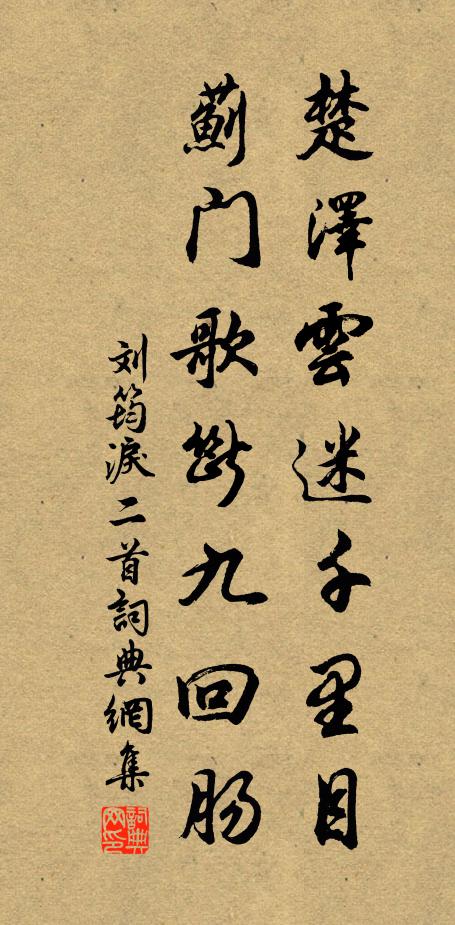 楚澤雲迷千里目
蓟门歌斷九回肠
刘筠淚二首詞典網集
詞典网印